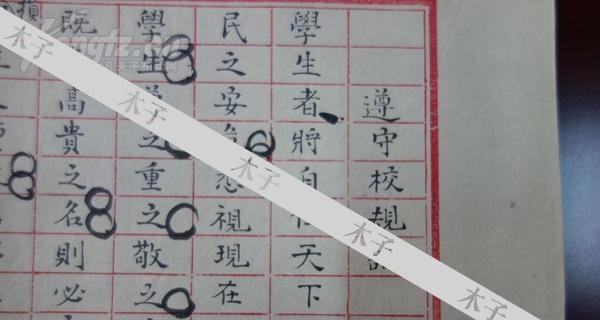 遵守校規
學生者將自任天下
民之安危悉視現在
學生尊之重之敬之
既高貴之名則必
損
木子
木子
木子
木子
木子